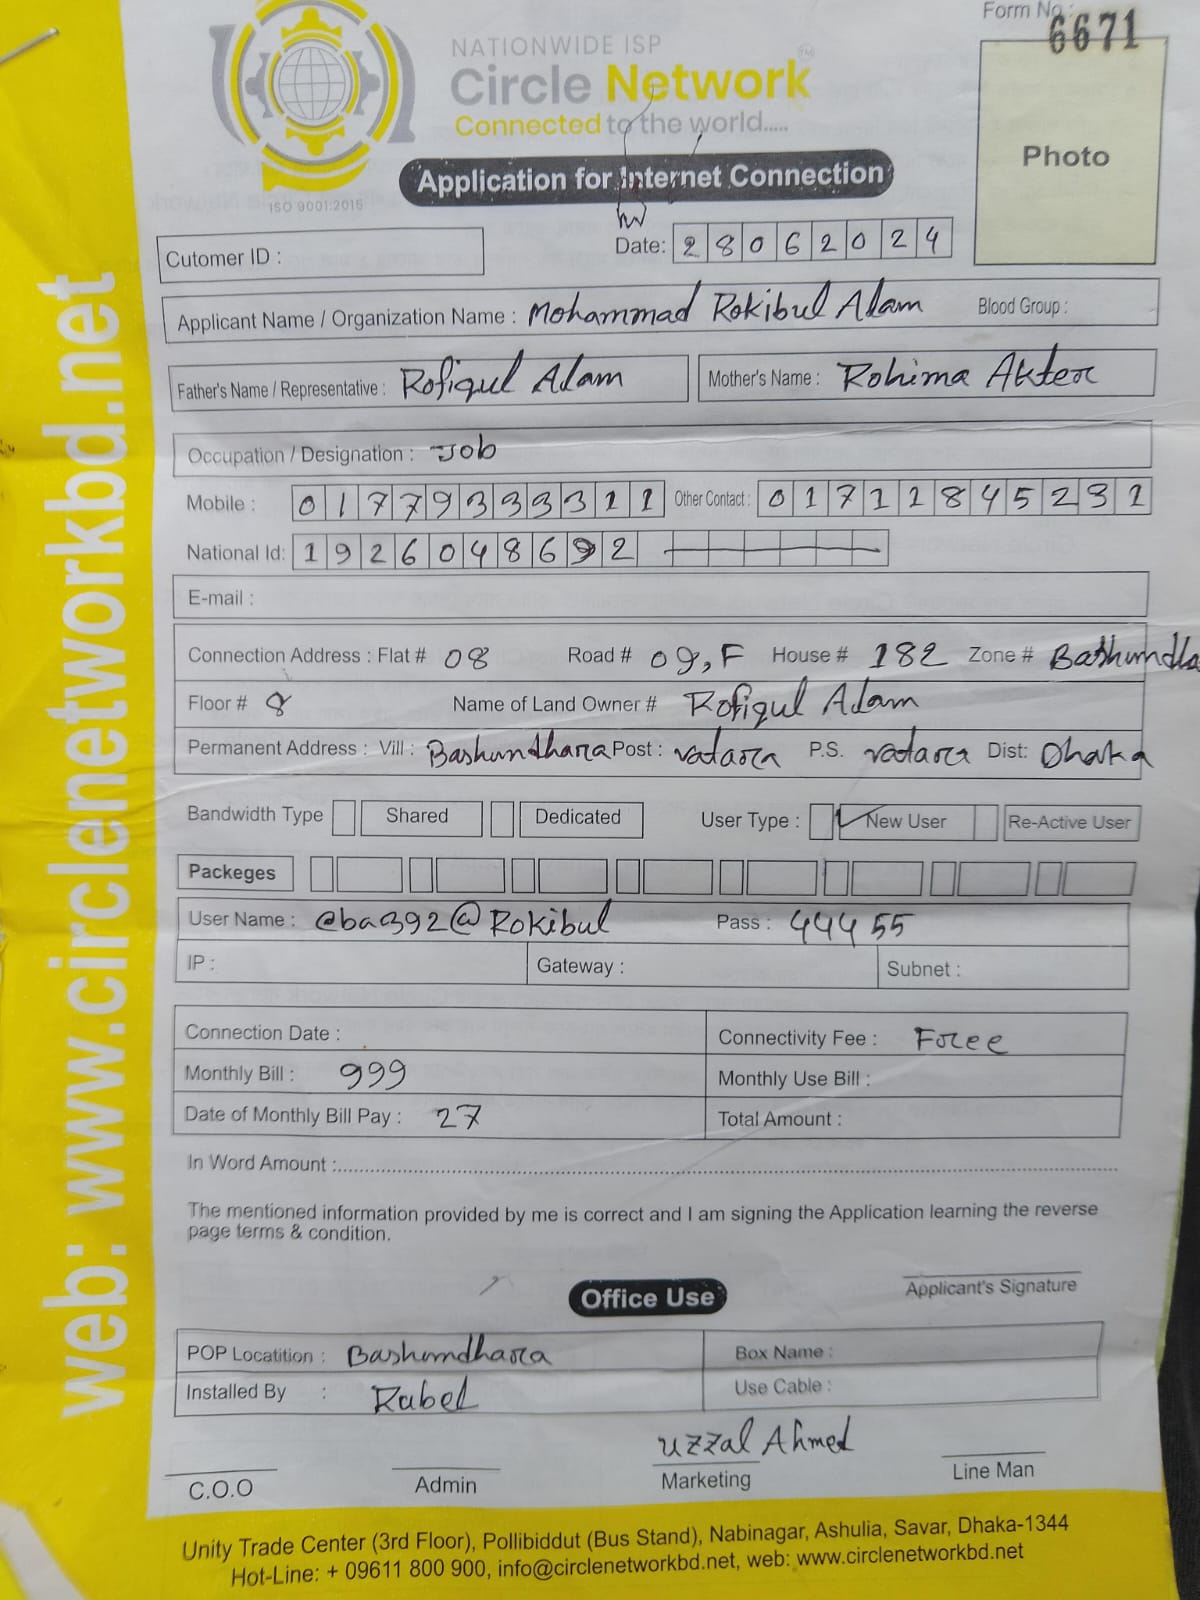 Form No.: 6671
NATIONWIDE ISP
Circle Network™
Connected to the world.....
ISO 9001:2015
Photo
Application for Internet Connection
Cutomer ID :
Date: 28062024
Applicant Name / Organization Name : Mohammad Rokibul Alam Blood Group :
Father's Name / Representative : Rofiqul Alam Mother's Name : Rohima Akter
Occupation / Designation : Job
Mobile : 01779333311 Other Contact : 01711845231
National Id: 1926048692
E-mail :
Connection Address : Flat # 08 Road # 09,F House # 182 Zone # Bashundha
Floor # 8 Name of Land Owner # Rofiqul Alam
Permanent Address : Vill : Bashundhara Post : vatara P.S. vatara Dist: Dhaka
Bandwidth Type Shared Dedicated User Type : New User Re-Active User
Packeges
User Name : @ba392@Rokibul Pass : 44455
IP : Gateway : Subnet :
Connection Date : Connectivity Fee : Free
Monthly Bill : 999 Monthly Use Bill :
Date of Monthly Bill Pay : 27 Total Amount :
In Word Amount :
The mentioned information provided by me is correct and I am signing the Application learning the reverse
page terms & condition.
Applicant's Signature
Office Use
POP Locatition : Bashundhara Box Name :
Installed By : Rubel Use Cable :
Uzzal Ahmed
C.O.O Admin Marketing Line Man
Unity Trade Center (3rd Floor), Pollibiddut (Bus Stand), Nabinagar, Ashulia, Savar, Dhaka-1344
Hot-Line: + 09611 800 900, info@circlenetworkbd.net, web: www.circlenetworkbd.net
web: www.circlenetworkbd.net